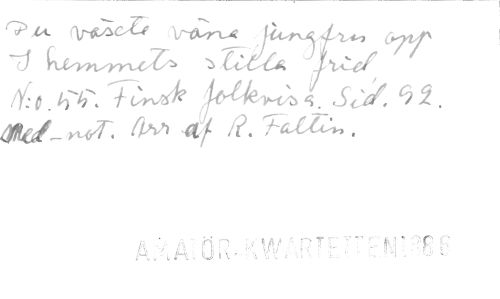 Du växte väna jungfru opp
I hemmets stilla frid,
N:o. 55. Finsk folkvisa. Sid. 92.
med-not. Arr af R. Faltin.
AMATÖR-KWARTETTEN 1886